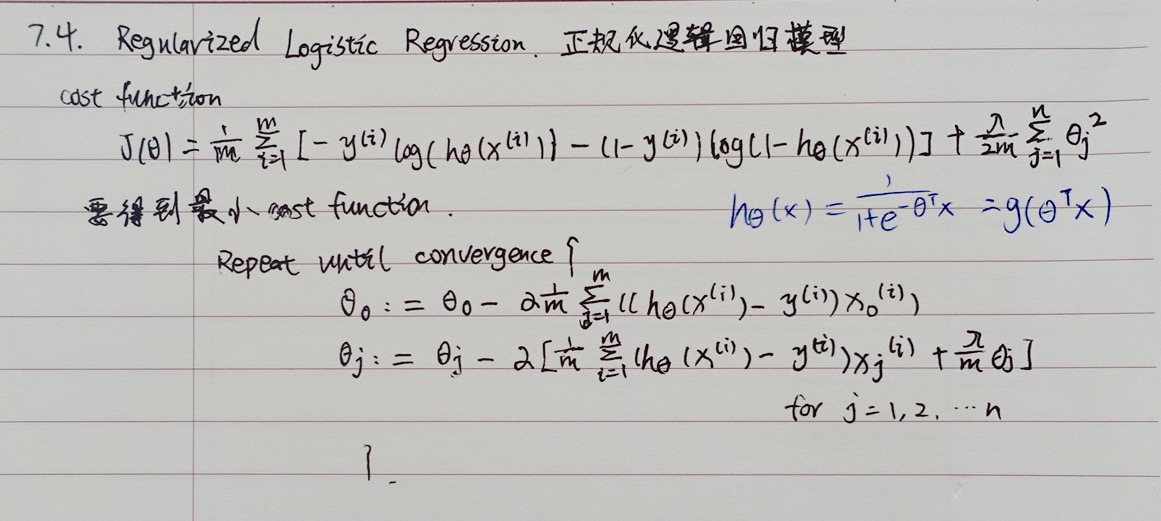 7.4. Regularized Logistic Regression. 正规化逻辑回归模型
cost function
J(θ) = 1/m Σ_{i=1}^{m} [- y^{(i)} log(hθ(x^{(i)})) - (1-y^{(i)}) log(1-hθ(x^{(i)}))] + λ/2m Σ_{j=1}^{n} θj^2
要得到最小 cost function.
hθ(x) = 1/(1+e^{-θ^T x}) = g(θ^T x)
Repeat until convergence {
θ0 := θ0 - α 1/m Σ_{i=1}^{m} ((hθ(x^{(i)}) - y^{(i)}) x0^{(i)})
θj := θj - α [1/m Σ_{i=1}^{m} (hθ(x^{(i)}) - y^{(i)}) xj^{(i)} + λ/m θj]
for j = 1, 2, ⋯ n
}.